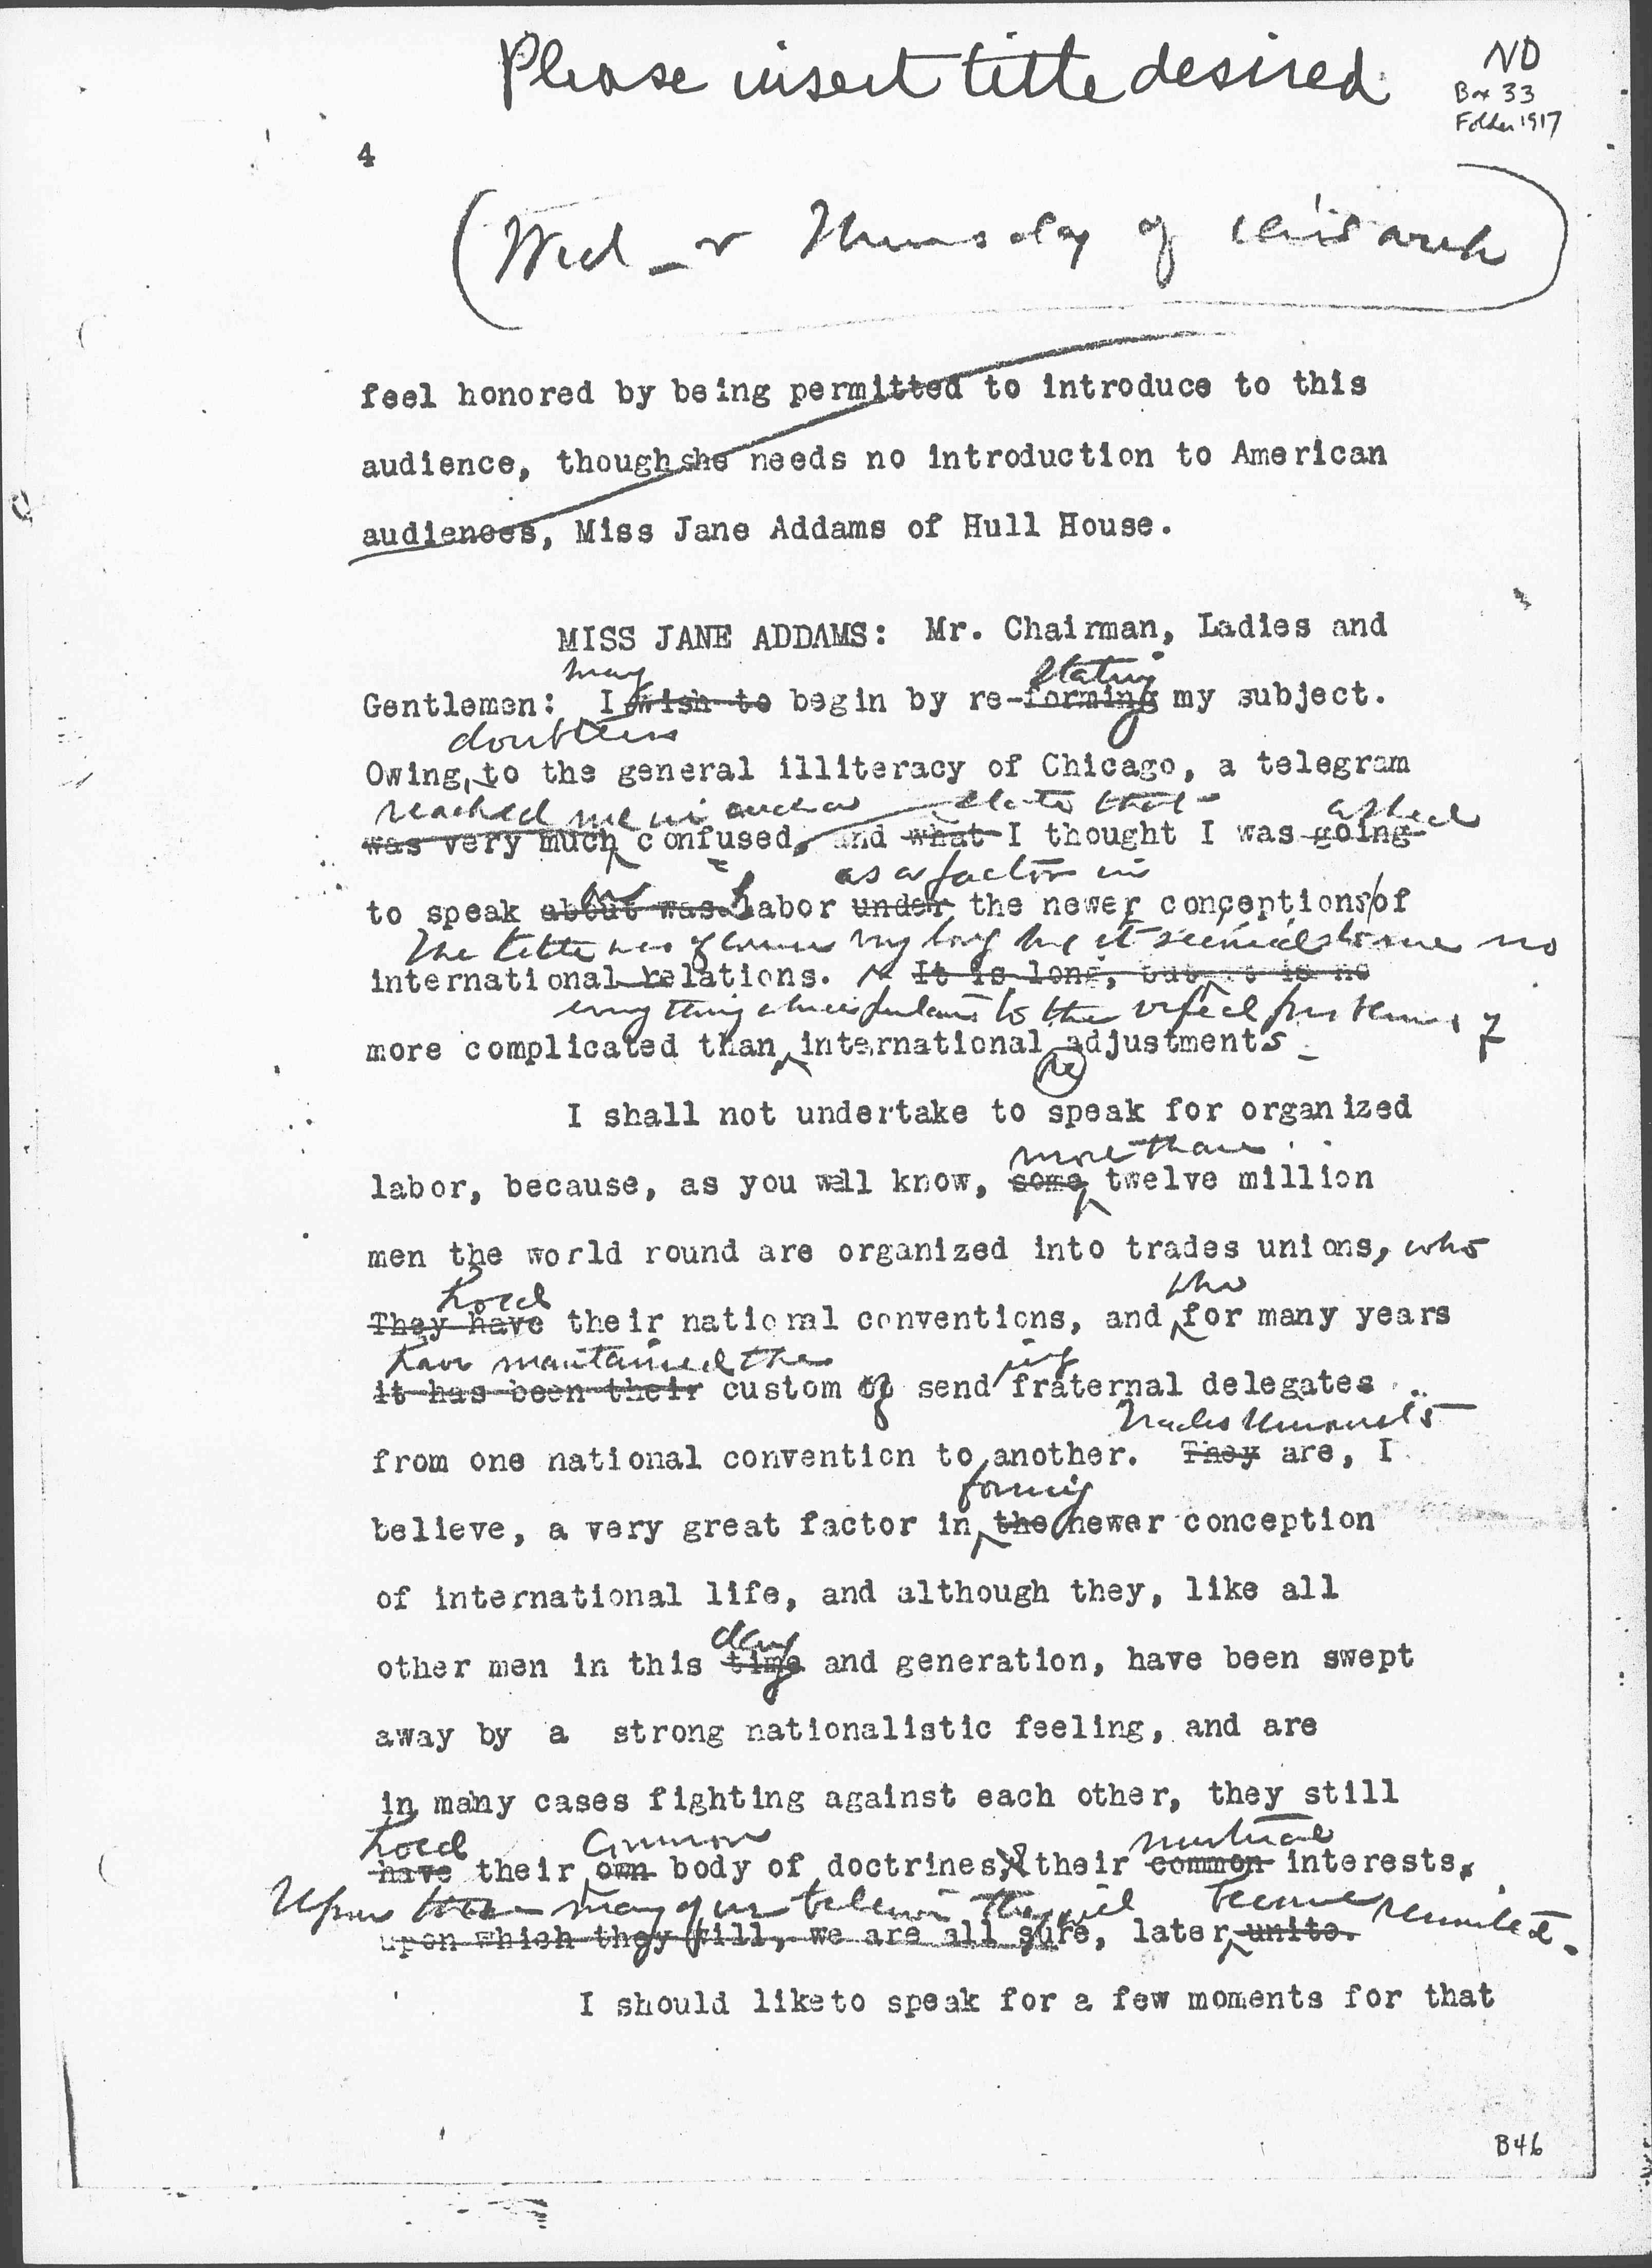 Please insert title desired
ND
Box 33
Folder 1917
4
(Wed - or Thursday of this week)
feel honored by being permitted to introduce to this
audience, though she needs no introduction to American
audiences, Miss Jane Addams of Hull House.
MISS JANE ADDAMS: Mr. Chairman, Ladies and
may stating
Gentlemen: I wish to begin by re-forming my subject.
doubtless
Owing, to the general illiteracy of Chicago, a telegram
reached me in such a state that asked
was very much confused, and what I thought I was going
on as a factor in
to speak about was labor under the newer conceptions of
The title was of course very long but it seemed to me no
international relations. It is long, but it is no
more complicated than international adjustments
everything to the problems of
re
I shall not undertake to speak for organized
more than
labor, because, as you well know, some twelve million
men the world round are organized into trades unions, who
hold who
They have their national conventions, and for many years
have maintained the ing
it has been their custom of send fraternal delegates
Trades Unionists
from one national convention to another. They are, I
forming
believe, a very great factor in the newer conception
of international life, and although they, like all
day
other men in this time and generation, have been swept
away by a strong nationalistic feeling, and are
in many cases fighting against each other, they still
hold common mutual
have their own body of doctrines, & their common interests,
Upon these many of us believe they will become reunited.
upon which they will, we are all sure, later unite.
I should like to speak for a few moments for that
B46